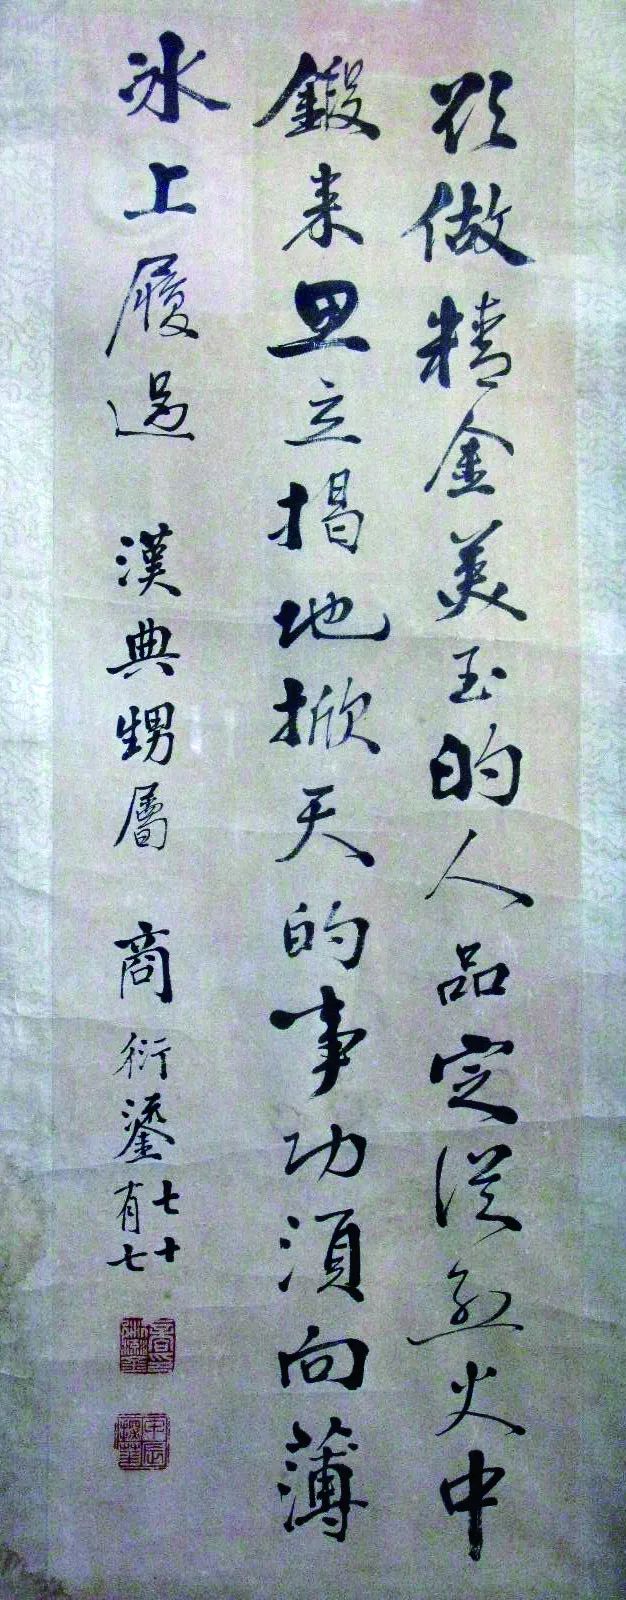 欲做精金美玉的人品定從烈火中
鍛来思立揭地掀天的事功須向薄
冰上履過 漢典甥屬 商衍鎏 七十有七
甲辰探花